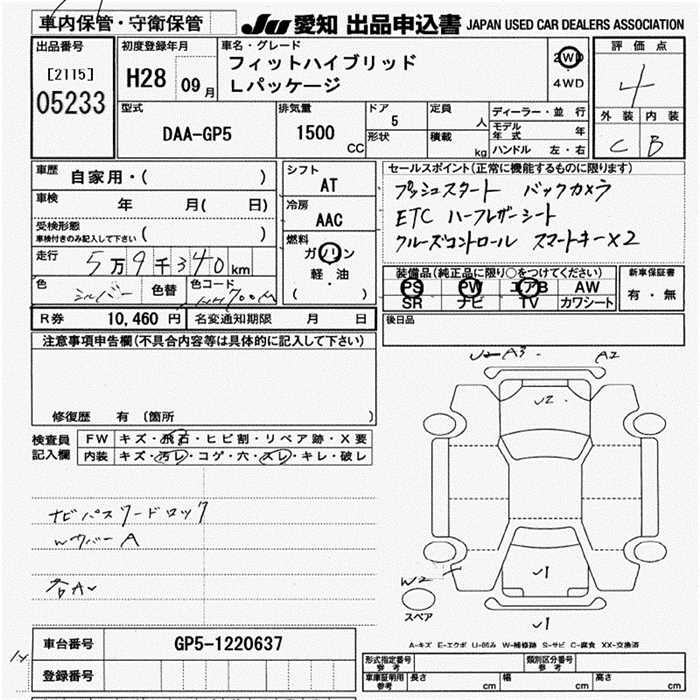 車内保管・守衛保管
JU 愛知 出品申込書 JAPAN USED CAR DEALERS ASSOCIATION
出品番号
[2115]
05233
初度登録年月
H28 09月
車名・グレード
フィットハイブリッド
Lパッケージ
2WD
4WD
評価点
4
外装 内装
C B
型式
DAA-GP5
排気量
1500 CC
ドア
5
形状
定員
人
積載
kg
ディーラー・並行
モデル年式 年
ハンドル 左・右
車歴 自家用・( )
車検 年 月( 日)
受検形態
車検付きのみ記入して下さい ( )
走行 5万9千340km
色 シルバー 色替 色コード
シフト
AT
冷房
AAC
燃料
ガソリン
軽・油
( )
セールスポイント(正常に機能するものに限ります)
プッシュスタート バックカメラ
ETC ハーフレザーシート
クルーズコントロール スマートキー×2
装備品(純正品に限り○をつけてください)
PS PW エアB AW
SR ナビ TV カワシート
新車保証書
有・無
R券 10,460円 名変通知期限 月 日
後日品
注意事項申告欄(不具合内容等は具体的に記入して下さい)
修復歴 有 〔箇所 〕
検査員
記入欄
FW キズ・飛石・ヒビ割・リペア跡・X要
内装 キズ・汚レ・コゲ・穴・スレ・キレ・破レ
ナビパスワードロック
WカバーA
U2 A3 A2
U2
W2
U1
U1
スペア
A-キズ E-エクボ U-凹み W-補修跡 S-サビ C-腐食 XX-交換済
車台番号 GP5-1220637
登録番号
型式指定番号
参考
類別区分番号
参考
車庫証明用
参考
長さ cm 幅 cm 高さ cm